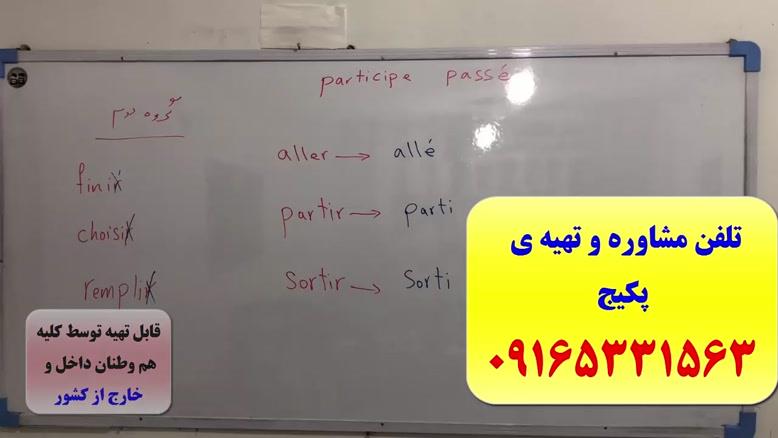 participe passé
گروه دوم
finir
choisir
remplir
aller → allé
partir → parti
sortir → sorti
تلفن مشاوره و تهیه ی
پکیج
۰۹۱۶۵۳۳۱۵۶۳
قابل تهیه توسط کلیه
هم وطنان داخل و
خارج از کشور